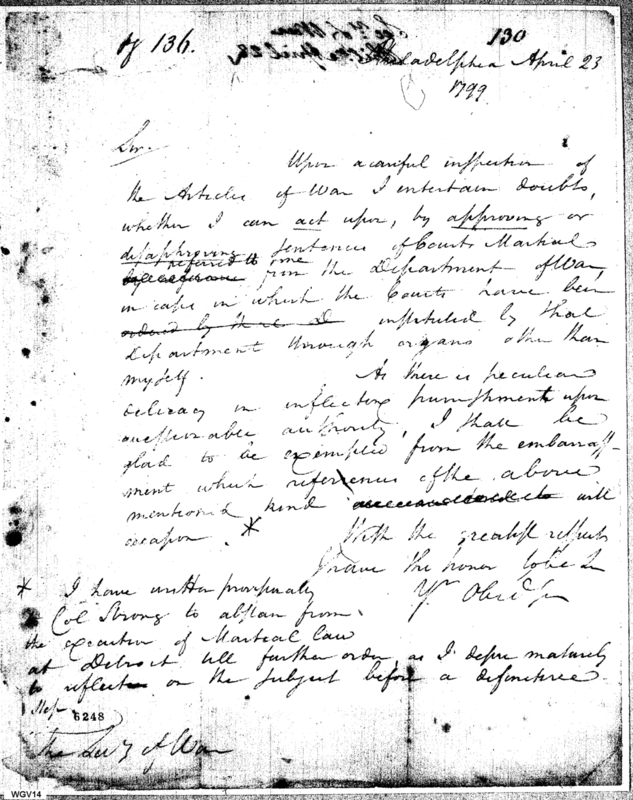 of 136.
130
Philadelphia April 23
1799
Sir.
Upon a careful inspection of
the Articles of War I entertain doubts,
whether I can act upon, by approving or
disapproving, sentences of Courts Martial
referred to me
from the Department of War,
in cases in which the Courts have been
ordered by the instituted by that
department through organs other than
myself. As there is peculiar
delicacy in inflicting punishment upon
questionable authority, I shall be
glad to be exempted from the embarrass-
ment which references of the above
mentioned kind will
occasion. *
With the greatest respect
I have the honor to be Sir
Yr Obed Ser
* I have written provisionally
to Col Strong to abstain from
the execution of Martial Law
at Detroit till further order as I desire maturely
to reflect on the subject before a definitive
step.
6248
The Secy of War
WGV14